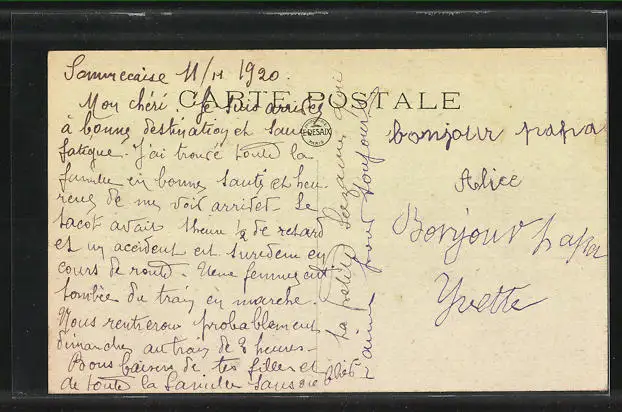 11/11 1920.
CARTE POSTALE
Mon chéri. Je suis arrivée
à bonne destination et sans
fatigue. J'ai trouvé toute la
famille en bonne santé et heu-
reuse de me voir arriver. Le
tacot avait 1 heure ½ de retard
et un accident est survenu en
cours de route. Une femme est
tombée du train en marche.
Nous rentrerons probablement
dimanche au train de 8 heures.
Bons baisers de tes filles et
de toute la famille sans
DESAIX
PARIS
La petite qui
aime pour toujours
bonjour papa
Alice
Bonjour papa
Yvette